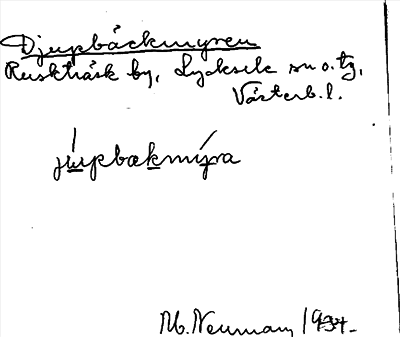 Djupbäckmyren
Ruskträsk by, Lycksele sn o. tg,
Västerb. l.
júupbakmýra
M. Neuman, 1934.